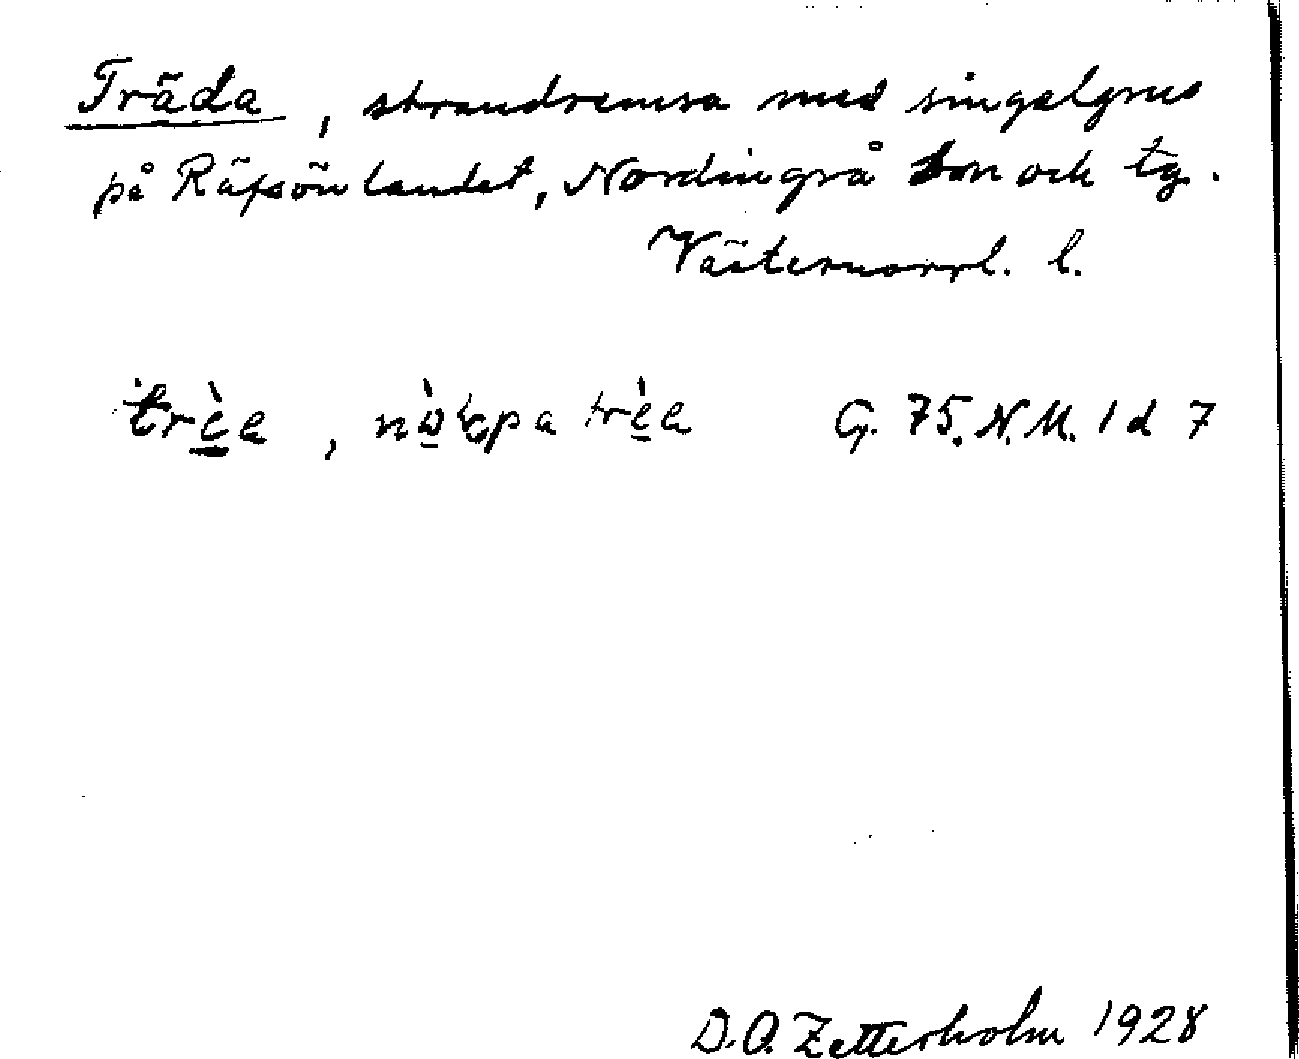 Träda, strandremsa med singelgrus
på Räfsön landet, Nordingrå sn och tg.
Västernorrl. l.
trèa, pa trèa G. 75. N. M. 1 d 7
D.O. Zetterholm 1928